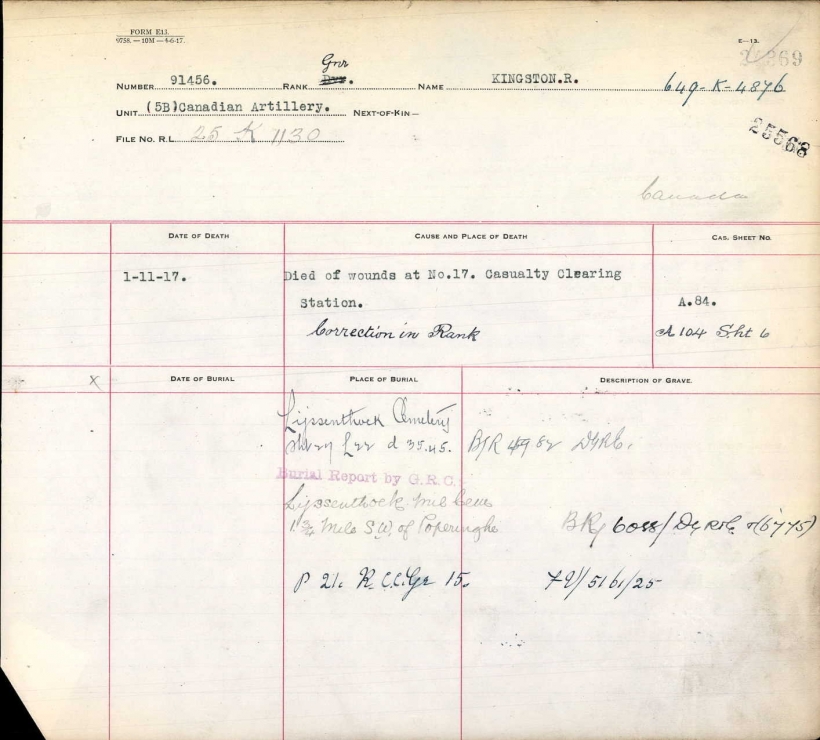 FORM E13.
9758. — 10M — 4-6-17.
E—13.
Gnr
NUMBER 91456. RANK Dvr. NAME KINGSTON.R. 649-K-4876
UNIT (5B)Canadian Artillery. NEXT-OF-KIN—
FILE NO. R.L. 25 K 1130
25568
Canada
DATE OF DEATH CAUSE AND PLACE OF DEATH CAS. SHEET NO.
1-11-17. Died of wounds at No.17. Casualty Clearing
Station. A.84.
Correction in Rank A 104 Sht 6
X DATE OF BURIAL PLACE OF BURIAL DESCRIPTION OF GRAVE.
Lijssenthoek Cemetery
d 35.45. B/R
Burial Report by G.R.C.
Lijssenthoek Mil Cem
1¾ Mels S.W. of Poperinghe BR/ 6088/
P 21. R. C.C. Gr 15. 72/5161/25